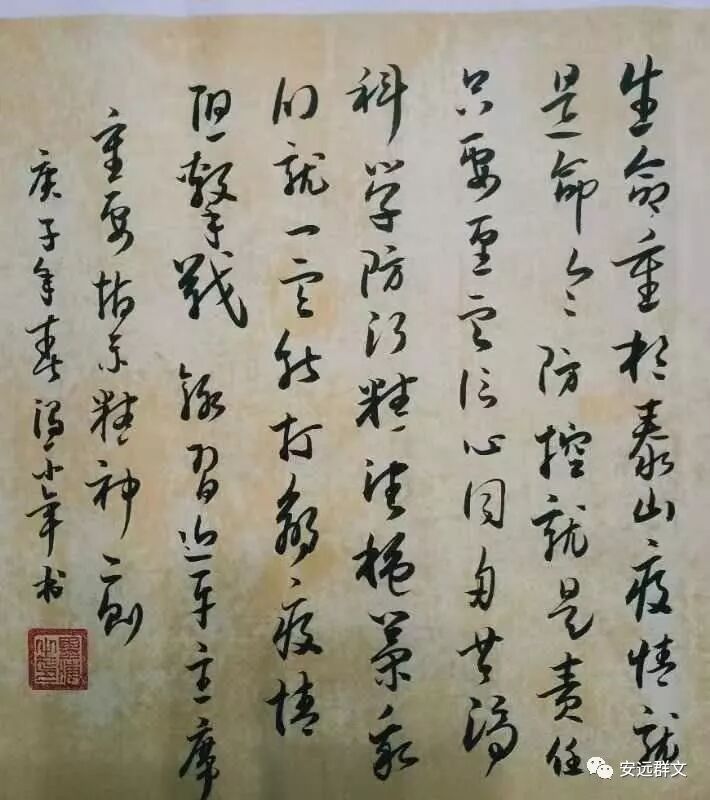 生命重於泰山疫情就
是命令防控就是责任
只要坚定信心同舟共济
科学防治精准施策我
们就一定能打赢疫情
阻擊战 録习近平主席
重要指示精神一则
庚子年春冯小年书
安远群文